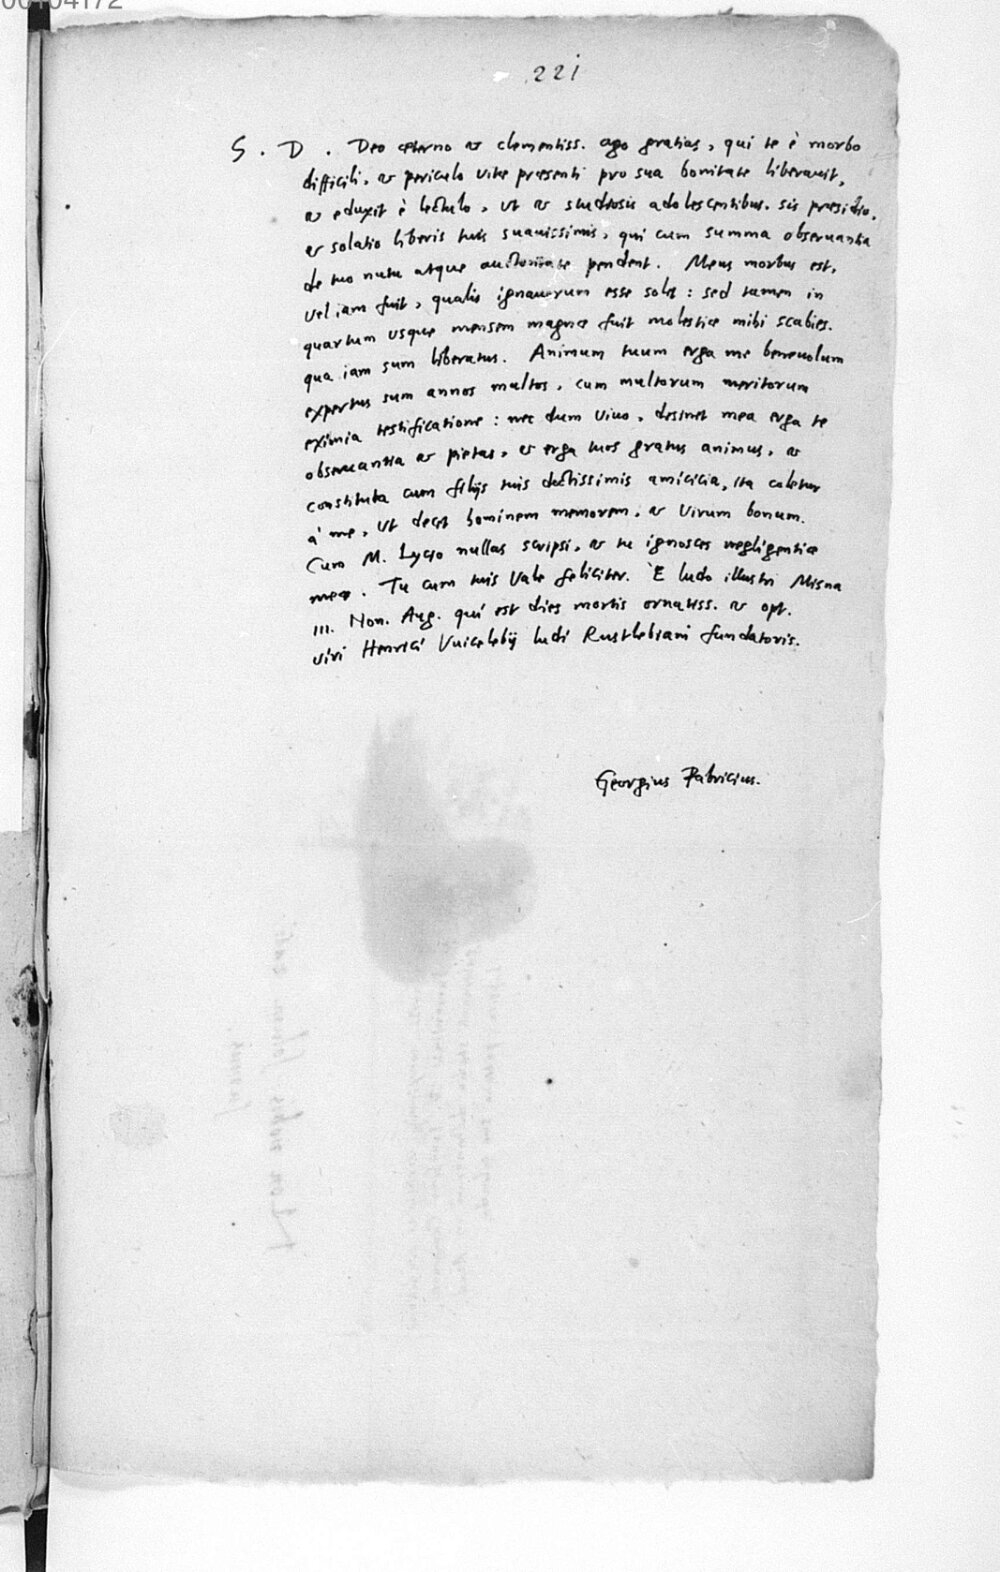 00104172
221
S. D. Deo æterno ac clementiss. ago gratias, qui te è morbo
difficili, ac periculo vitæ præsenti pro sua bonitate liberauit,
ac eduxit è lectulo, ut ac studiosis adolescentibus sis præsidio,
et solatio liberis tuis suauissimis, qui cum summa obseruantia
de tuo nutu atque auctoritate pendent. Meus morbus est,
vel iam fuit, qualis ignauorum esse solet: sed tamen in
quartum usque mensem magnæ fuit molestiæ mihi scabies.
qua iam sum liberatus. Animum tuum erga me beneuolum
expertus sum annos multos, cum multorum meritorum
eximia testificatione: nec dum viuo, desinet mea erga te
obseruantia ac pietas, et erga tuos gratus animus, ac
constituta cum filijs tuis doctissimis amicicia, ita coletur
à me, ut decet hominem memorem, ac virum bonum.
Cum M. Lycio nullas scripsi, ac tu ignosces negligentiæ
meæ. Tu cum tuis vale feliciter. È ludo illustri Misna
III. Non. Aug. qui est dies mortis ornatiss. ac opt.
viri Henrici Vuicelebij ludi Rustlebiani fundatoris.
Georgius Fabricius.